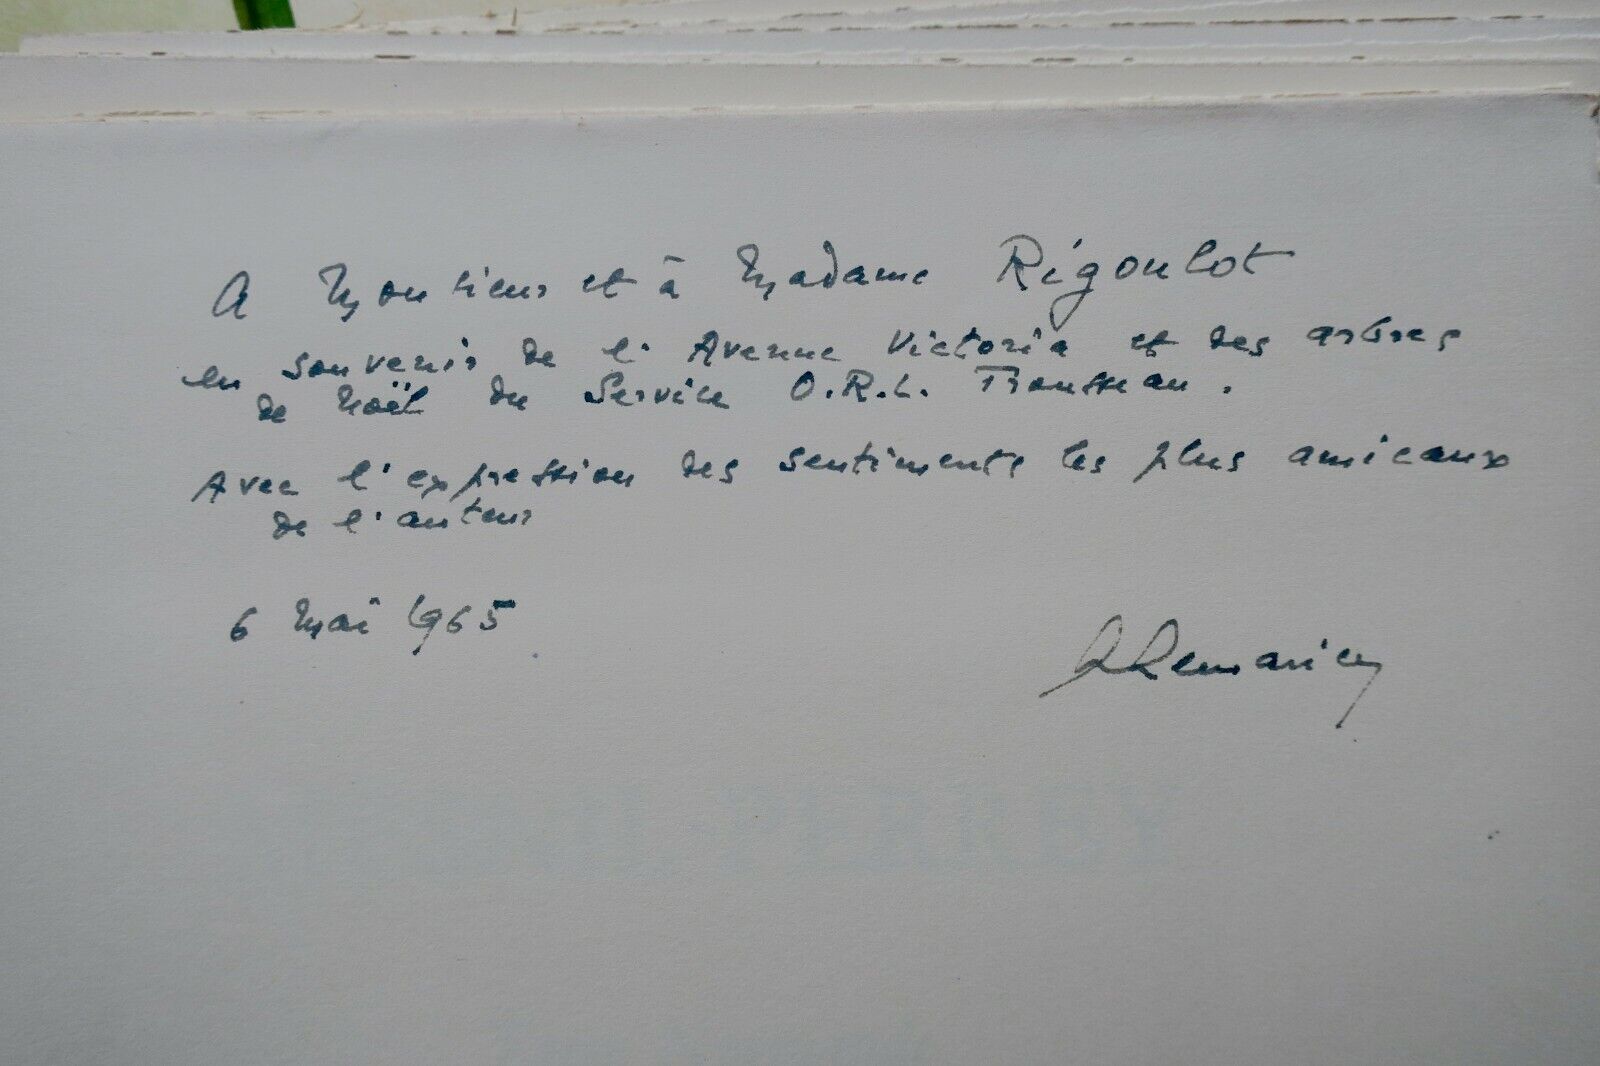 A Monsieur et à Madame Rigoulot
en souvenir de l'Avenue Victoria et des arbres
de Noël du Service O.R.L. Trousseau.
Avec l'expression des sentiments les plus amicaux
de l'auteur
6 Mai 1965
ALemariey